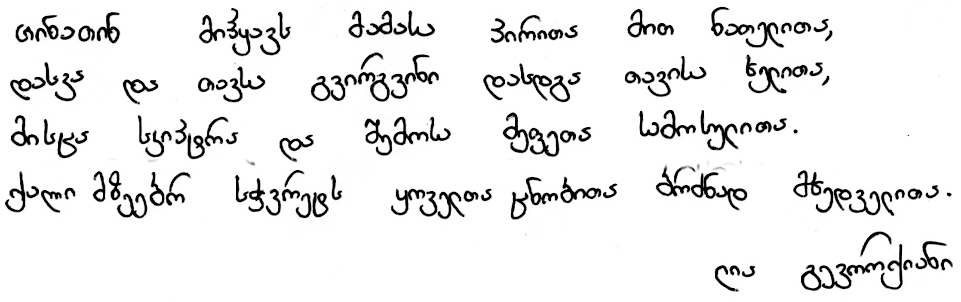 თინათინ მიჰყავს მამასა პირითა მით ნათელითა,
დასვა და თავსა გვირგვინი დასდგა თავისა ხელითა,
მისცა სკიპტრა და შემოსა მეფეთა სამოსელითა.
ქალი მზეებრ სჭვრეტს ყოველთა ცნობითა ბრძნად მხედველითა.
ლია გევორქიანი